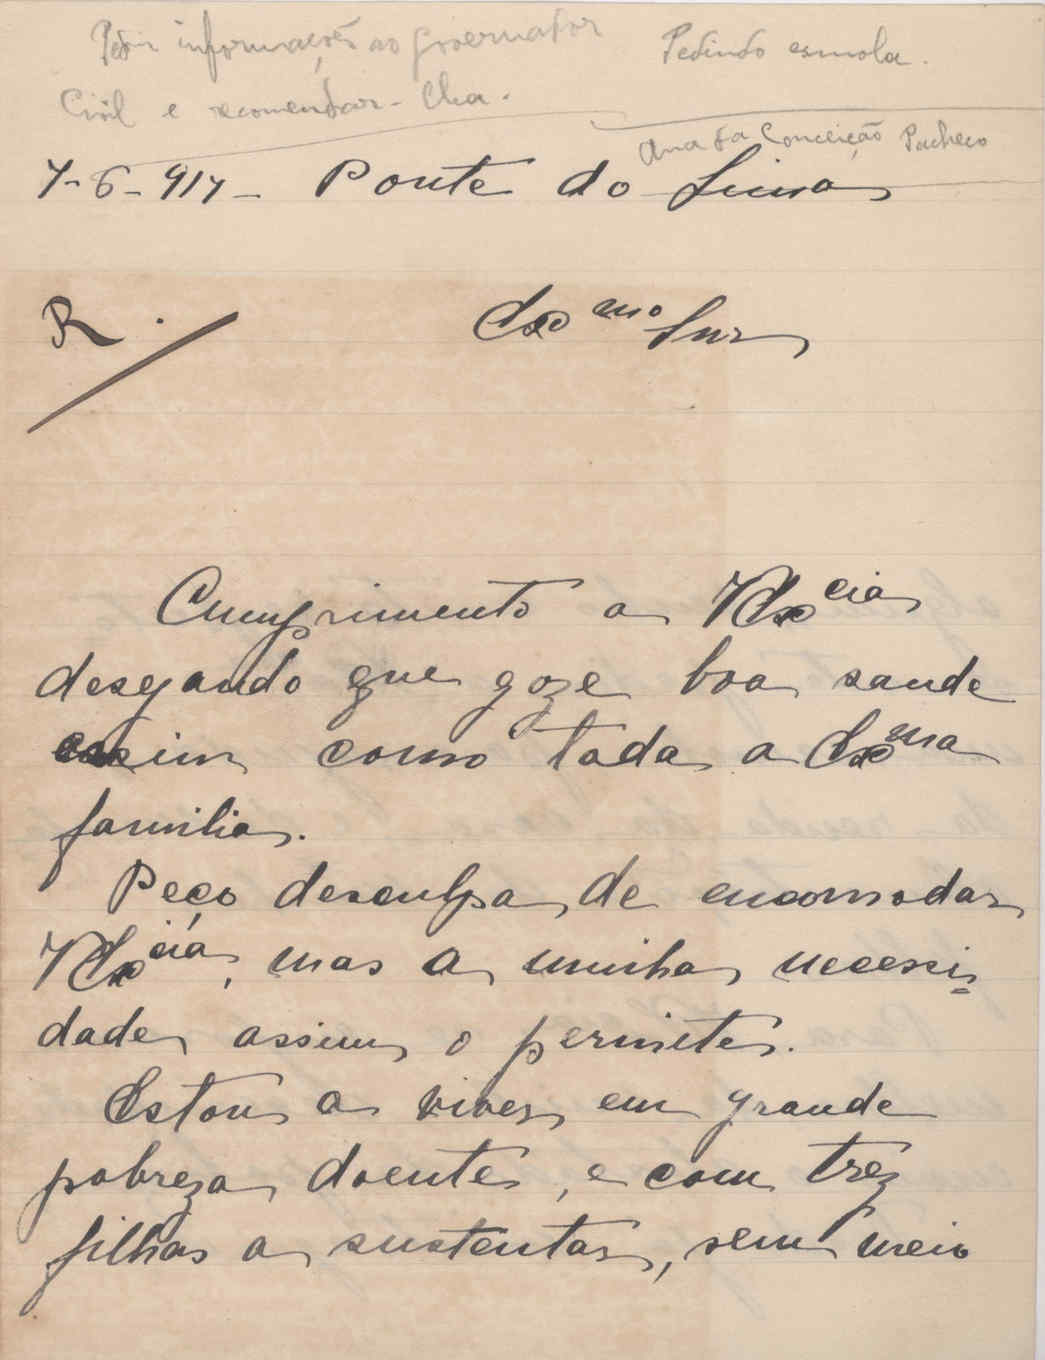 Pedir informações ao governador
Civil e recomendar-lha.
Pedindo esmola.
Ana da Conceição Pacheco
7-6-917- Ponte do Lima
R.
Exmo Snr
Cumprimento a VExcia
desejando que goze boa saude
assim como toda a Exma
familia.
Peço desculpa, de encomodar
VExcia, mas a minha necessi-
dade assim o permite.
Estou a viver em grande
pobreza doente, e com trez
filhas a sustentar, sem meio